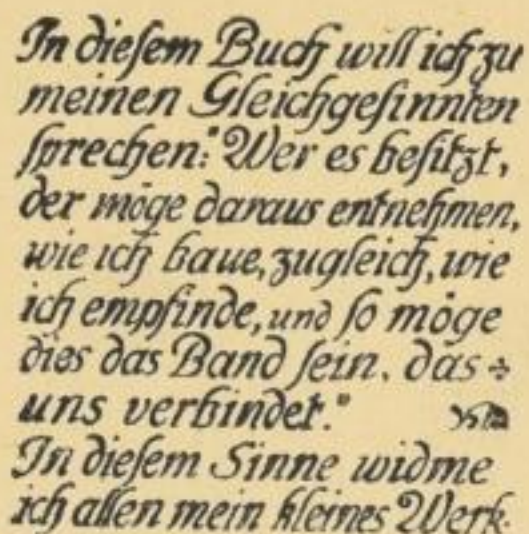 In dieſem Buch will ich zu
meinen Gleichgeſinnten
ſprechen: "Wer es beſitzt,
der möge daraus entnehmen,
wie ich baue, zugleich, wie
ich empfinde, und ſo möge
dies das Band ſein, das
uns verbindet."
In dieſem Sinne widme
ich allen mein kleines Werk.